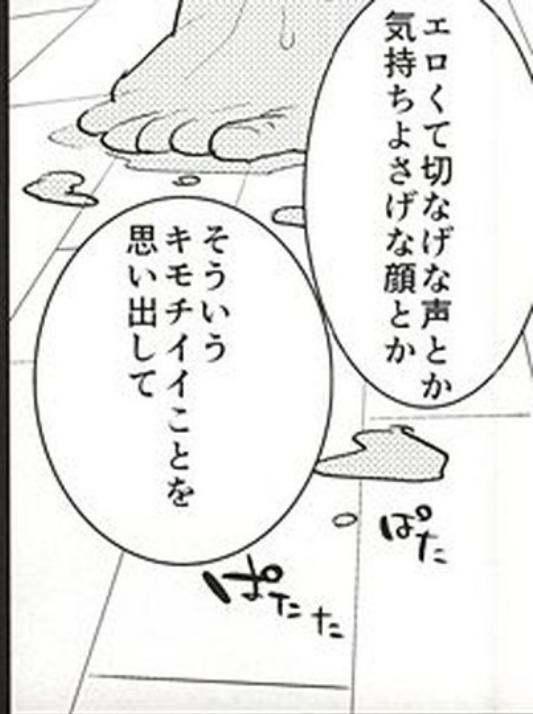 エロくて切なげな声とか
気持ちよさげな顔とか
そういう
キモチイイことを
思い出して
ぱた
ぱたた